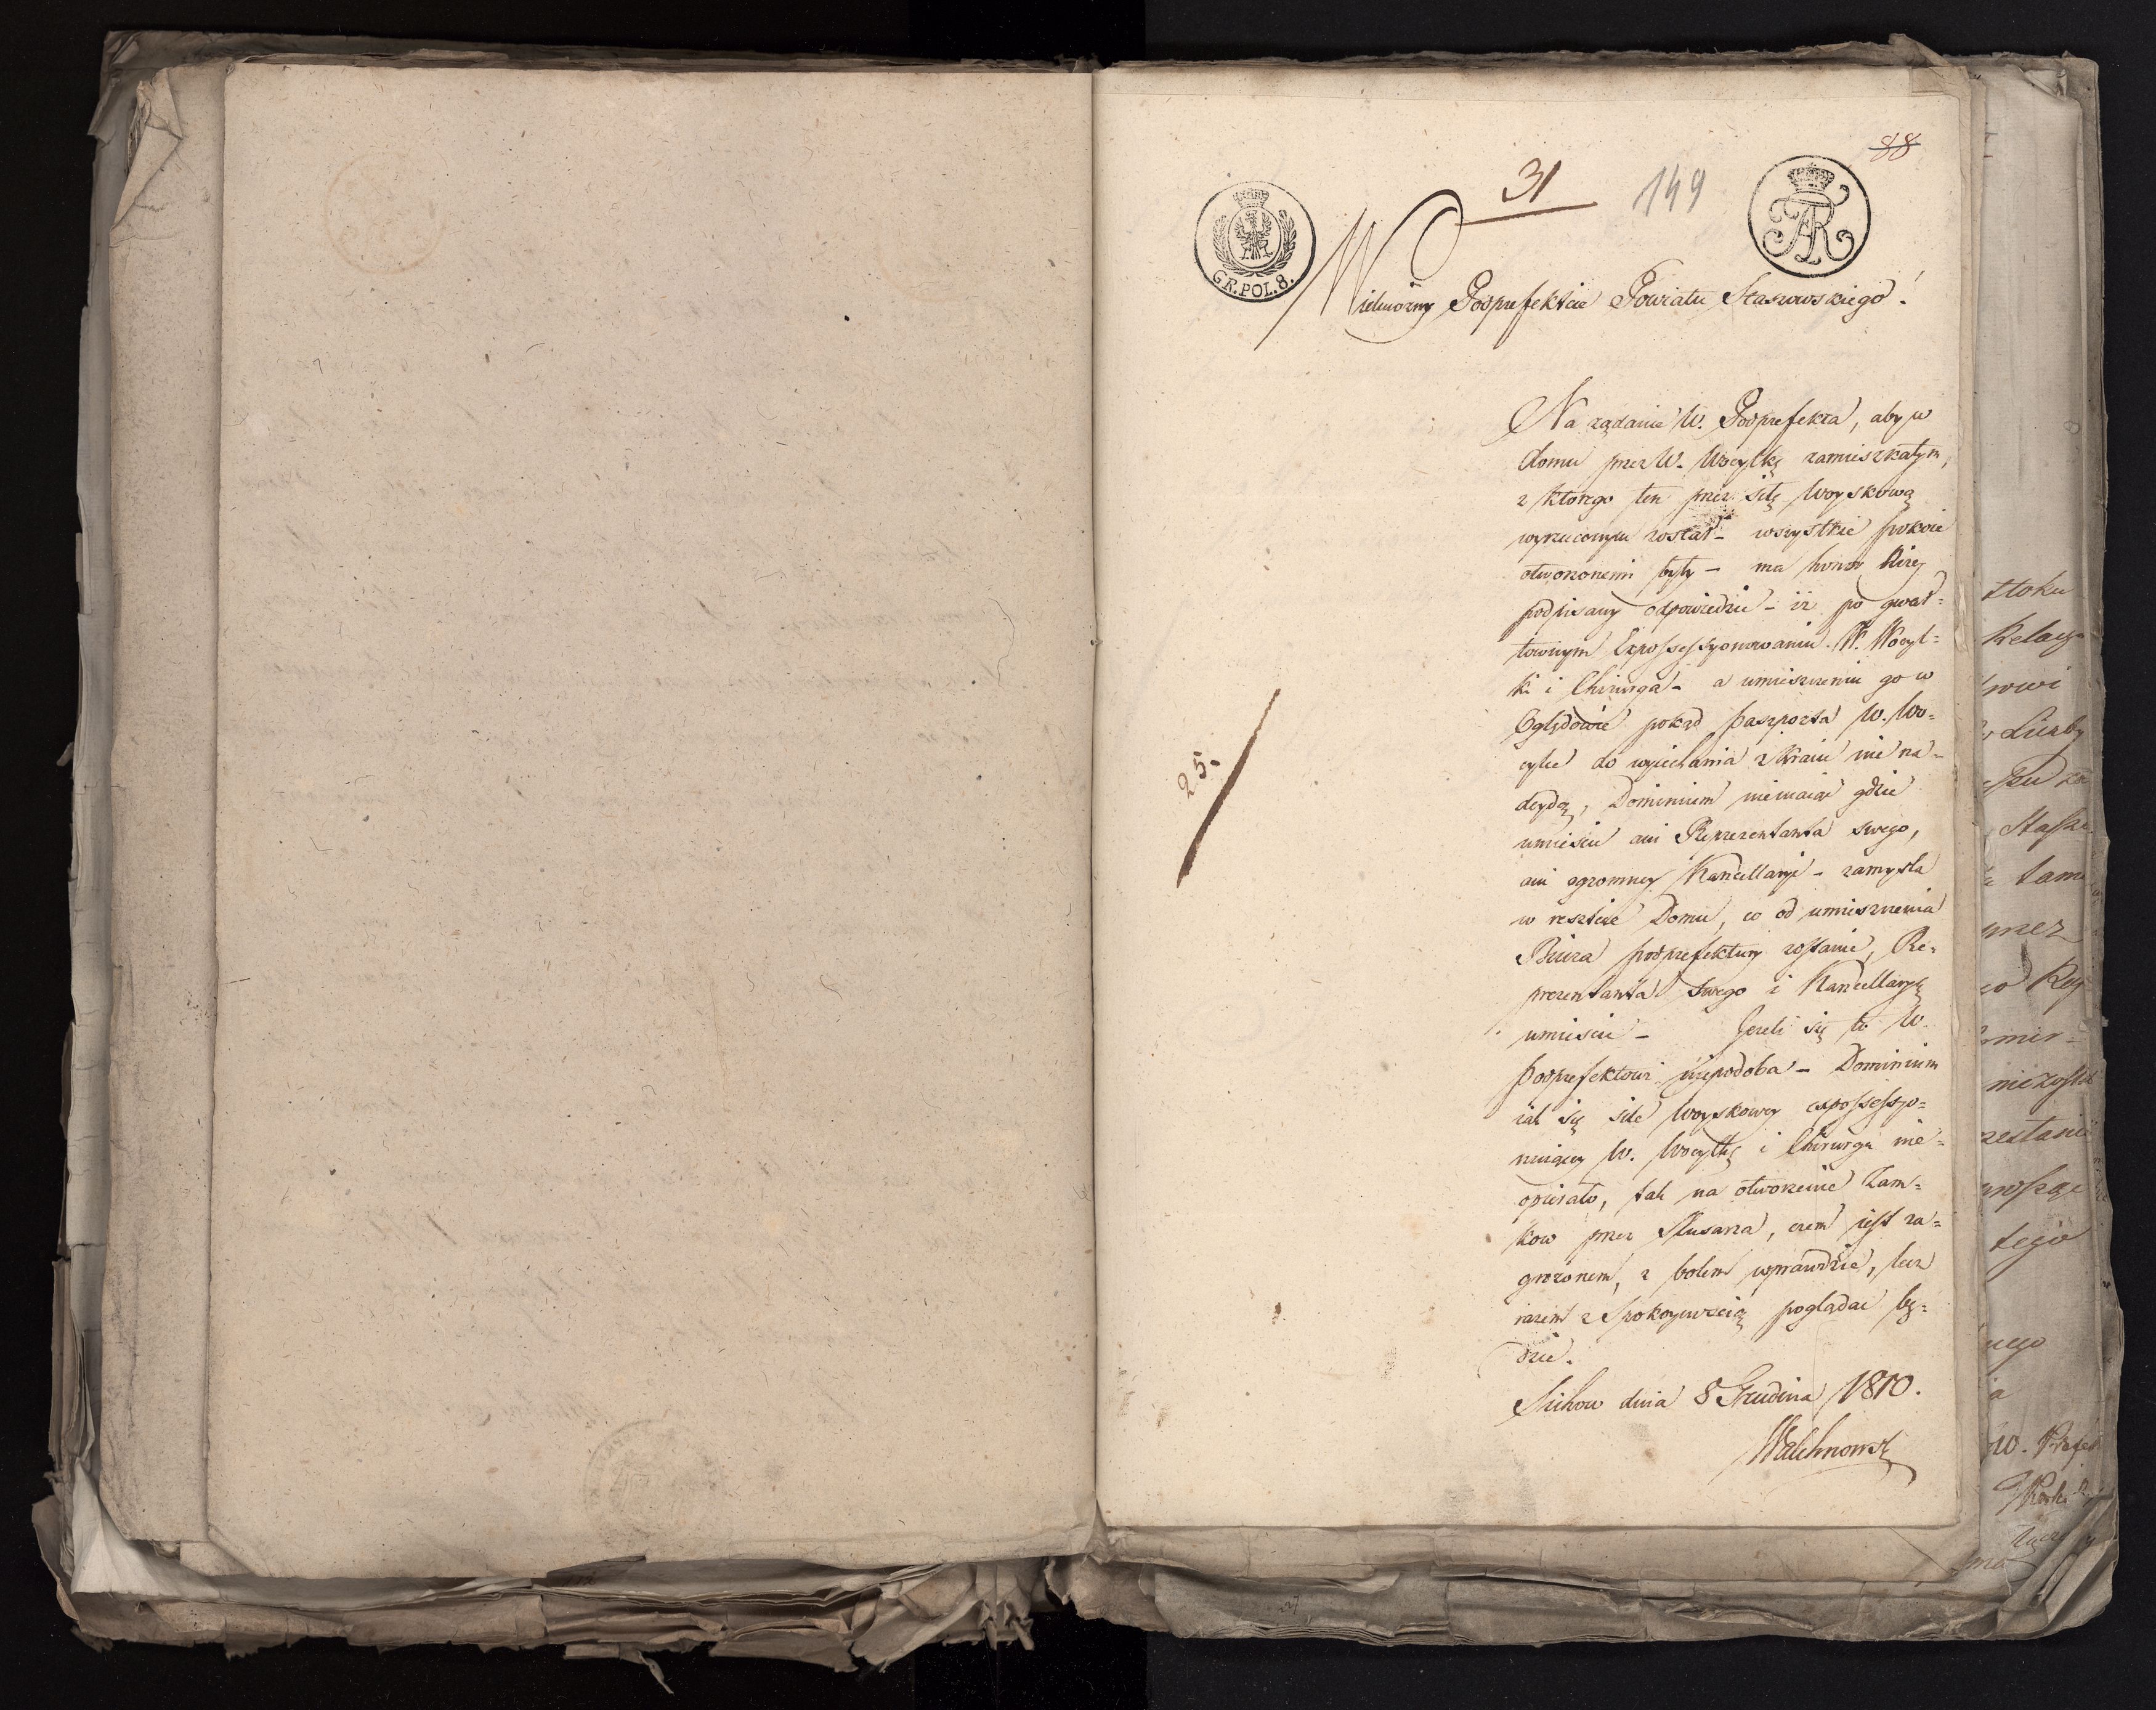 88
31
149
GR. POL. 8.
Wielmożny Podprefekcie Powiatu Staszowskiego!
Na żądanie W. Podprefekta, aby w
domu przez W. Wocytkę zamieszkałym,
z ktorego ten przez siłę Woyskową
wyrzuconym został – wszystkie pokoie
otworzonemi były – ma honor Niżej
podpisany odpowiedzieć – iż po gwał=
townym Expossessyonowaniu W. Wocyt=
ki i Chirurga – a umieszczeniu go w
Oględowie pokąd paszporta W. Wo=
cytce do wyiechania z Kraiu nie na=
deydą, Dominium niemaiąc gdzie
umieścić ani Reprezentanta swego,
ani ogromney Kancellaryi – zamyśla
w reszcie Domu, co od umieszczenia
Biura podprefektury zostanie, Re=
prezentanta swego i Kancellaryą
umieścić – Jeżeli się to W.
Podprefektowi niepodoba – Dominium
iak się sile Woyskowey expossessyo=
nuiącey W. Wocytkę i Chirurga nie=
opierało, tak na otworzenie Zam=
kow przez Slusarza, czem iest za=
grożonem, z bolem wprawdzie, lecz
razem z Spokoynością poglądać bę=
dzie.
25.
Sichow dnia 8 Grudnia 1810.
Walchnowski
ttoku